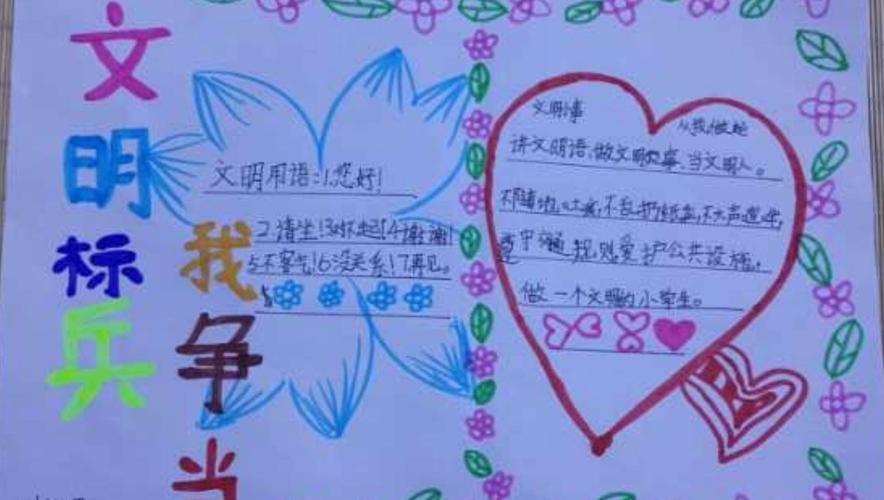 文明标兵
我争当
文明用语:1.您好!
2.请坐!3对不起!4谢谢!
5不客气!6没关系!7再见。
文明事
从我做起
讲文明语、做文明事、当文明人。
不随地吐痰,不乱扔纸盒,不大声喧哗,
遵守交通规则爱护公共设施,
做一个文明的小学生。